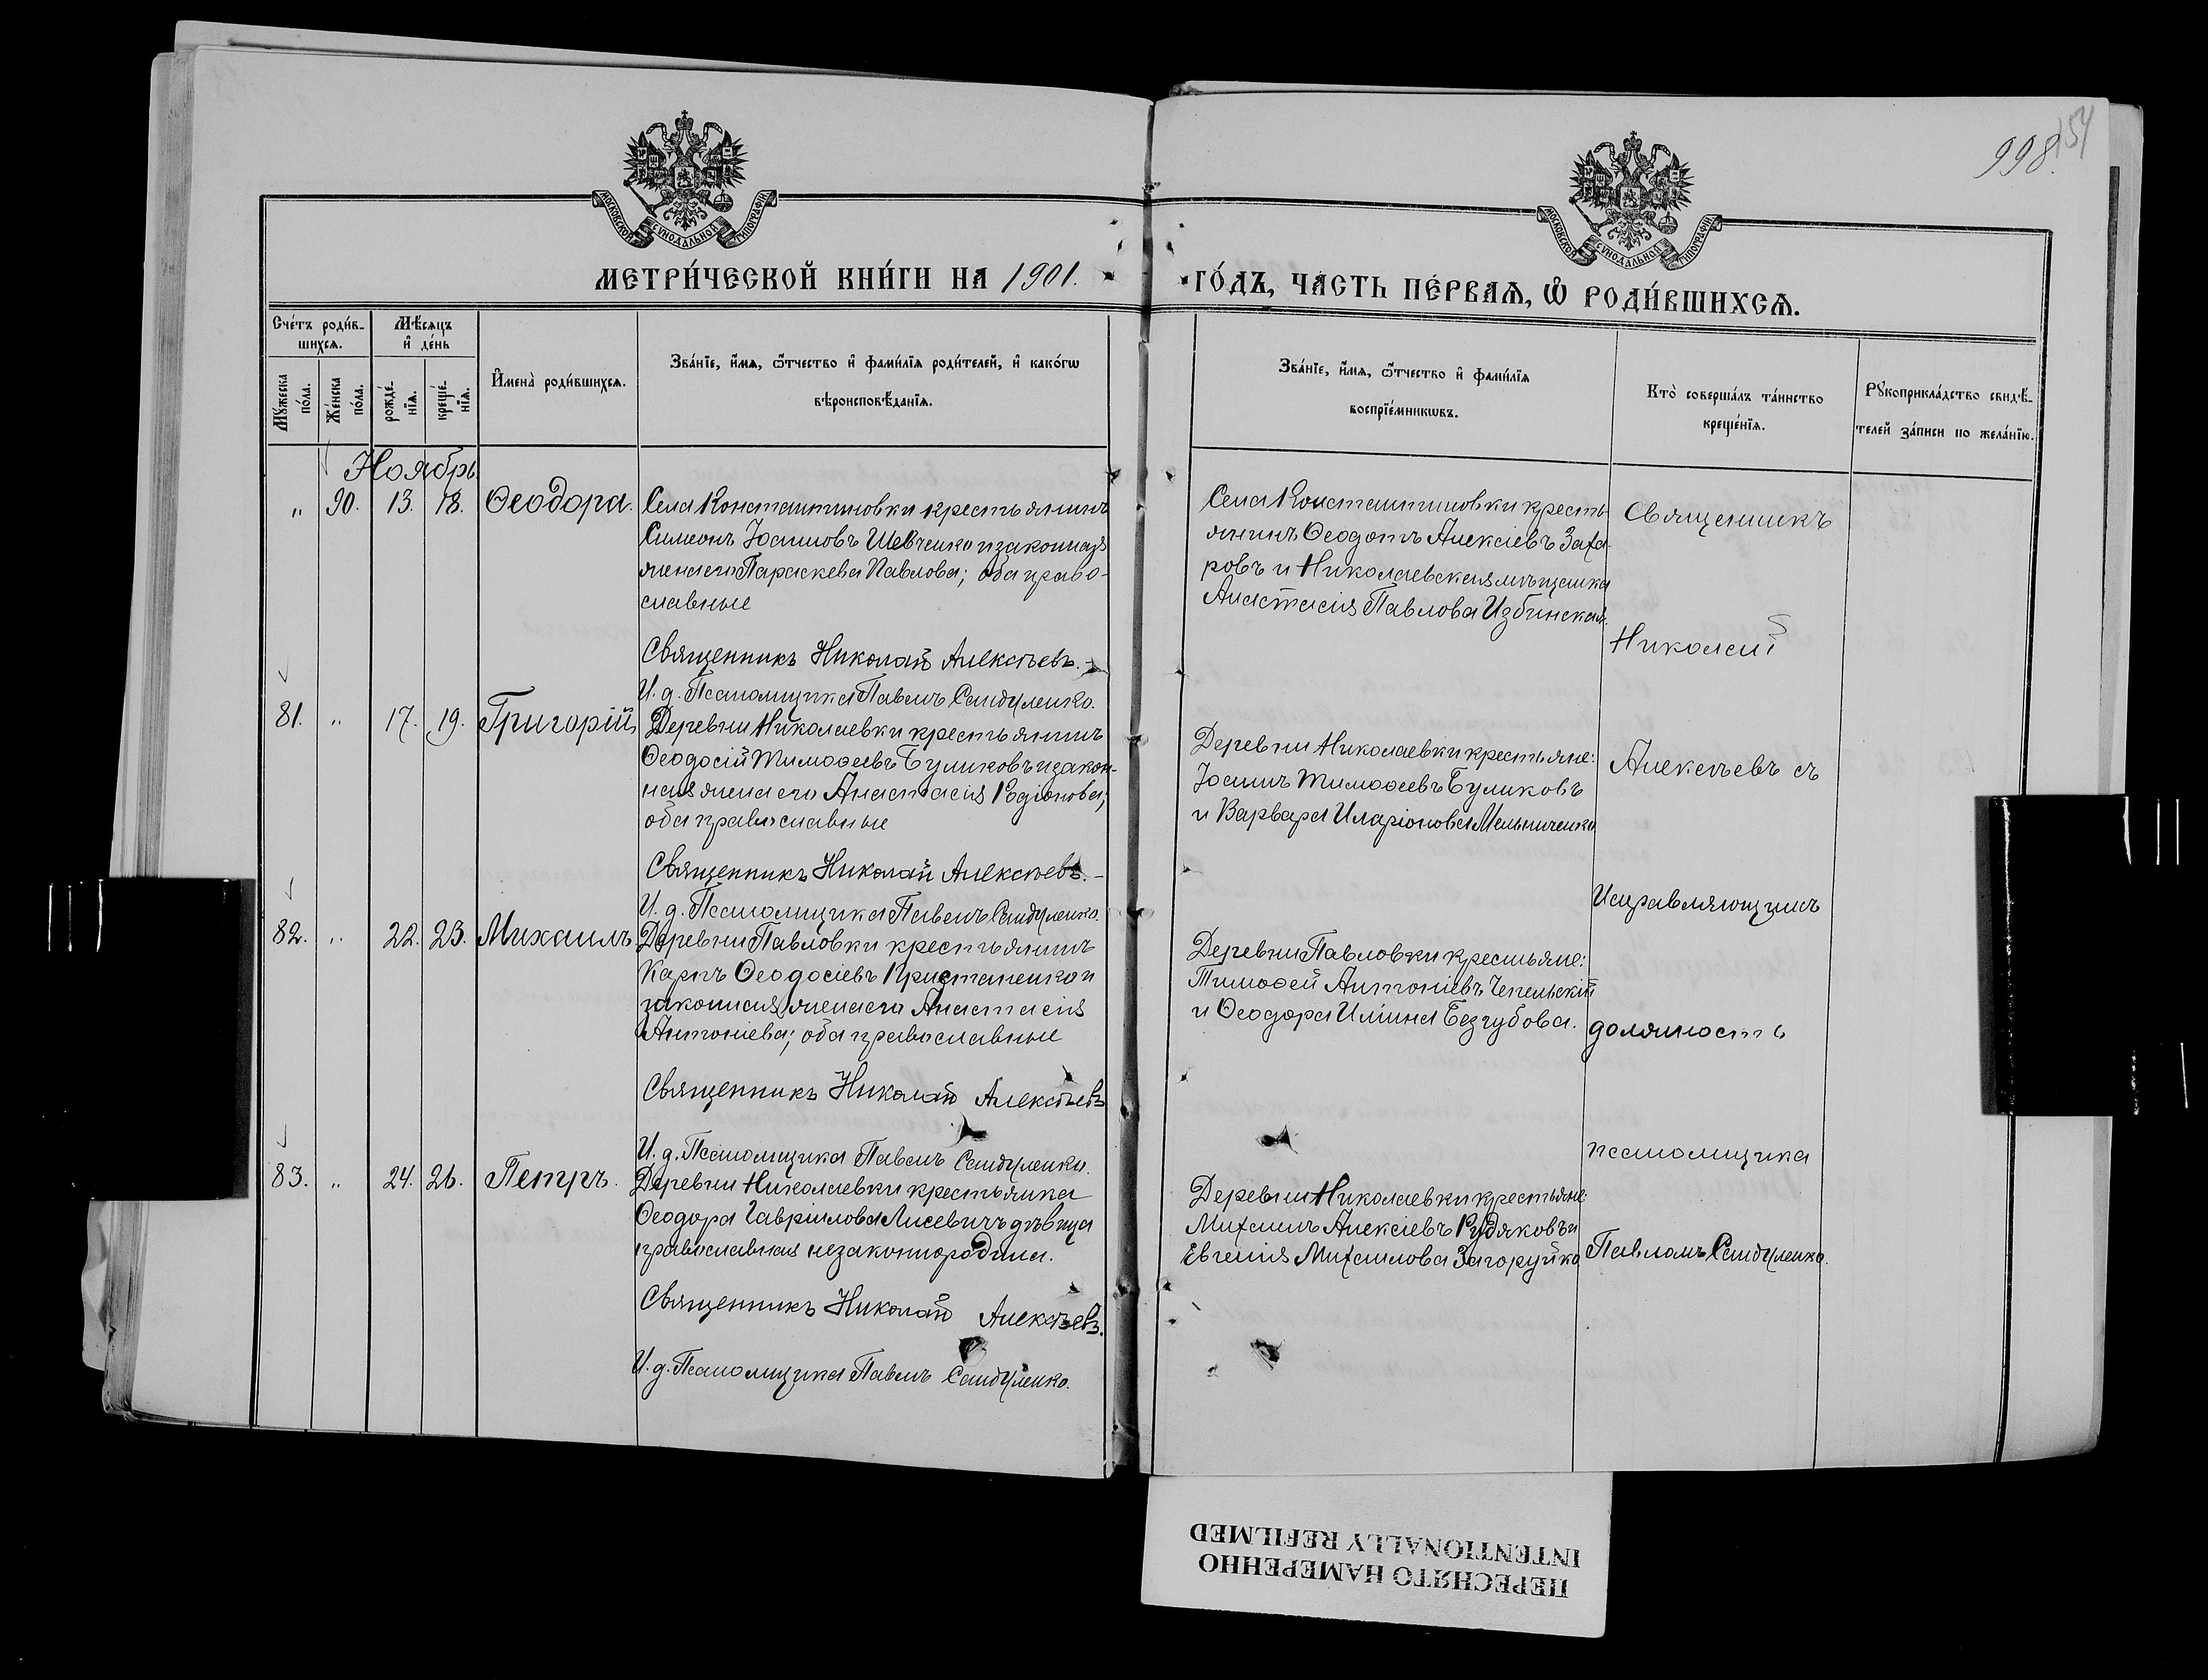 998.
154
МОСКОВСКОЙ СѴНОДАЛЬНОЙ ТИПОГРАФІИ
МОСКОВСКОЙ СѴНОДАЛЬНОЙ ТИПОГРАФІИ
МЕТРИ́ЧЕСКОЙ КНИ́ГИ НА 1901.
ГО́ДЪ, ЧА́СТЬ ПЕ́РВАѦ, Ѡ҆ РОДИ́ВШИХСѦ.
Сче́тъ роди́в-
шихсѧ.
Мꙋ́жеска по́ла.
Же́нска по́ла.
Мѣ́сѧцъ
и҆ де́нь
рожде́-
нїѧ.
креще́-
нїѧ.
И҆мена̀ роди́вшихсѧ.
Зва́нїе, и҆́мѧ, ѻ҆́тчество и҆ фами́лїѧ роди́телей, и҆ како́гѡ
вѣроисповѣ́данїѧ.
Зва́нїе, и҆́мѧ, ѻ҆́тчество и҆ фами́лїѧ
воспрїе́мникѡвъ.
Кто̀ соверша́лъ та́инство
креще́нїѧ.
Рꙋкоприкла́дство свидѣ́-
телей за́писи по жела́нїю.
Ноябрь
" 90. 13. 18. Ѳеодора.
Села Константиновки крестьянинъ
Симеонъ Іоанновъ Шевченко и законная
жена его Параскева Павлова; оба право-
славные
Священникъ Николай Алексѣевъ.-
И. д. Псаломщика Павелъ Сандуленко.
Села Константиновки кресть-
янинъ Ѳеодотъ Алексіевъ Заха-
ровъ и Николаевская мѣщанка
Анастасія Павлова Избинская.
Священникъ
Николай
81. " 17. 19. Григорій
Деревни Николаевки крестьянинъ
Ѳеодосій Тимоѳеевъ Буликовъ и закон-
ная жена его Анастасія Родіонова;
оба православные
Священникъ Николай Алексѣевъ.-
И. д. Псаломщика Павелъ Сандуленко.
Деревни Николаевки крестьяне:
Іоаннъ Тимоѳеевъ Буликовъ
и Варвара Иларіонова Мельниченко
Алексѣевъ съ
Исправляющимъ
82. " 22. 23. Михаилъ
Деревни Павловки крестьянинъ
Карпъ Ѳеодосіевъ Пристапенко и
законная жена его Анастасія
Антоніева; оба православные
Священникъ Николай Алексѣевъ
И. д. Псаломщика Павелъ Сандуленко.
Деревни Павловки крестьяне:
Тимоѳей Антоніевъ Чепельскій
и Ѳеодора Иліина Беззубова.
должность
псаломщика
83. " 24. 26. Петръ.
Деревни Николаевки крестьянка
Ѳеодора Гавріилова Лисевичъ дѣвица
православная незаконнородила.
Священникъ Николай Алексѣевъ.
И. д. Псаломщика Павелъ Сандуленко.
Деревни Николаевки крестьяне:
Михаилъ Алексіевъ Рудяковъ и
Евгенія Михаилова Загоруйко
Павломъ Сандуленко.
ПЕРЕСНЯТО НАМЕРЕННО
INTENTIONALLY REFILMED